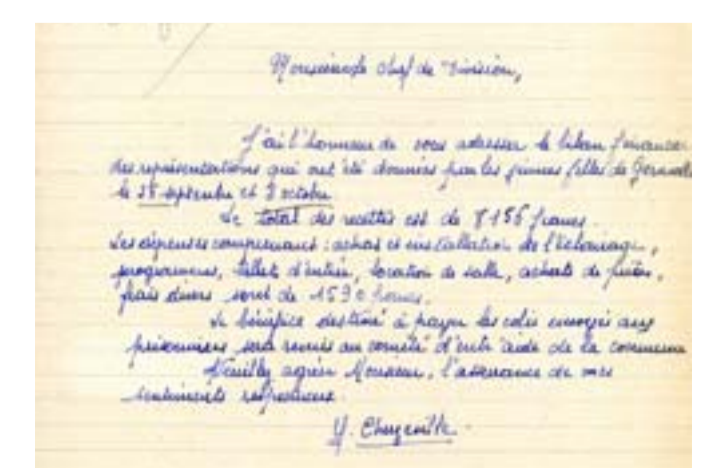 Monsieur le chef de Division,
J'ai l'honneur de vous adresser le bilan financier
des représentations qui ont été données par les jeunes filles de
le 28 septembre et 8 octobre
Le total des recettes est de 8155 francs.
Les dépenses comprenant : achat et installation de l'éclairage,
programmes, billets d'entrée, location de salle, achats de
frais divers sont de 1590 francs.
Le bénéfice destiné à payer les colis envoyés aux
prisonniers sera remis au comité d'entr'aide de la commune
Veuillez agréer Monsieur, l'assurance de mes
sentiments respectueux.